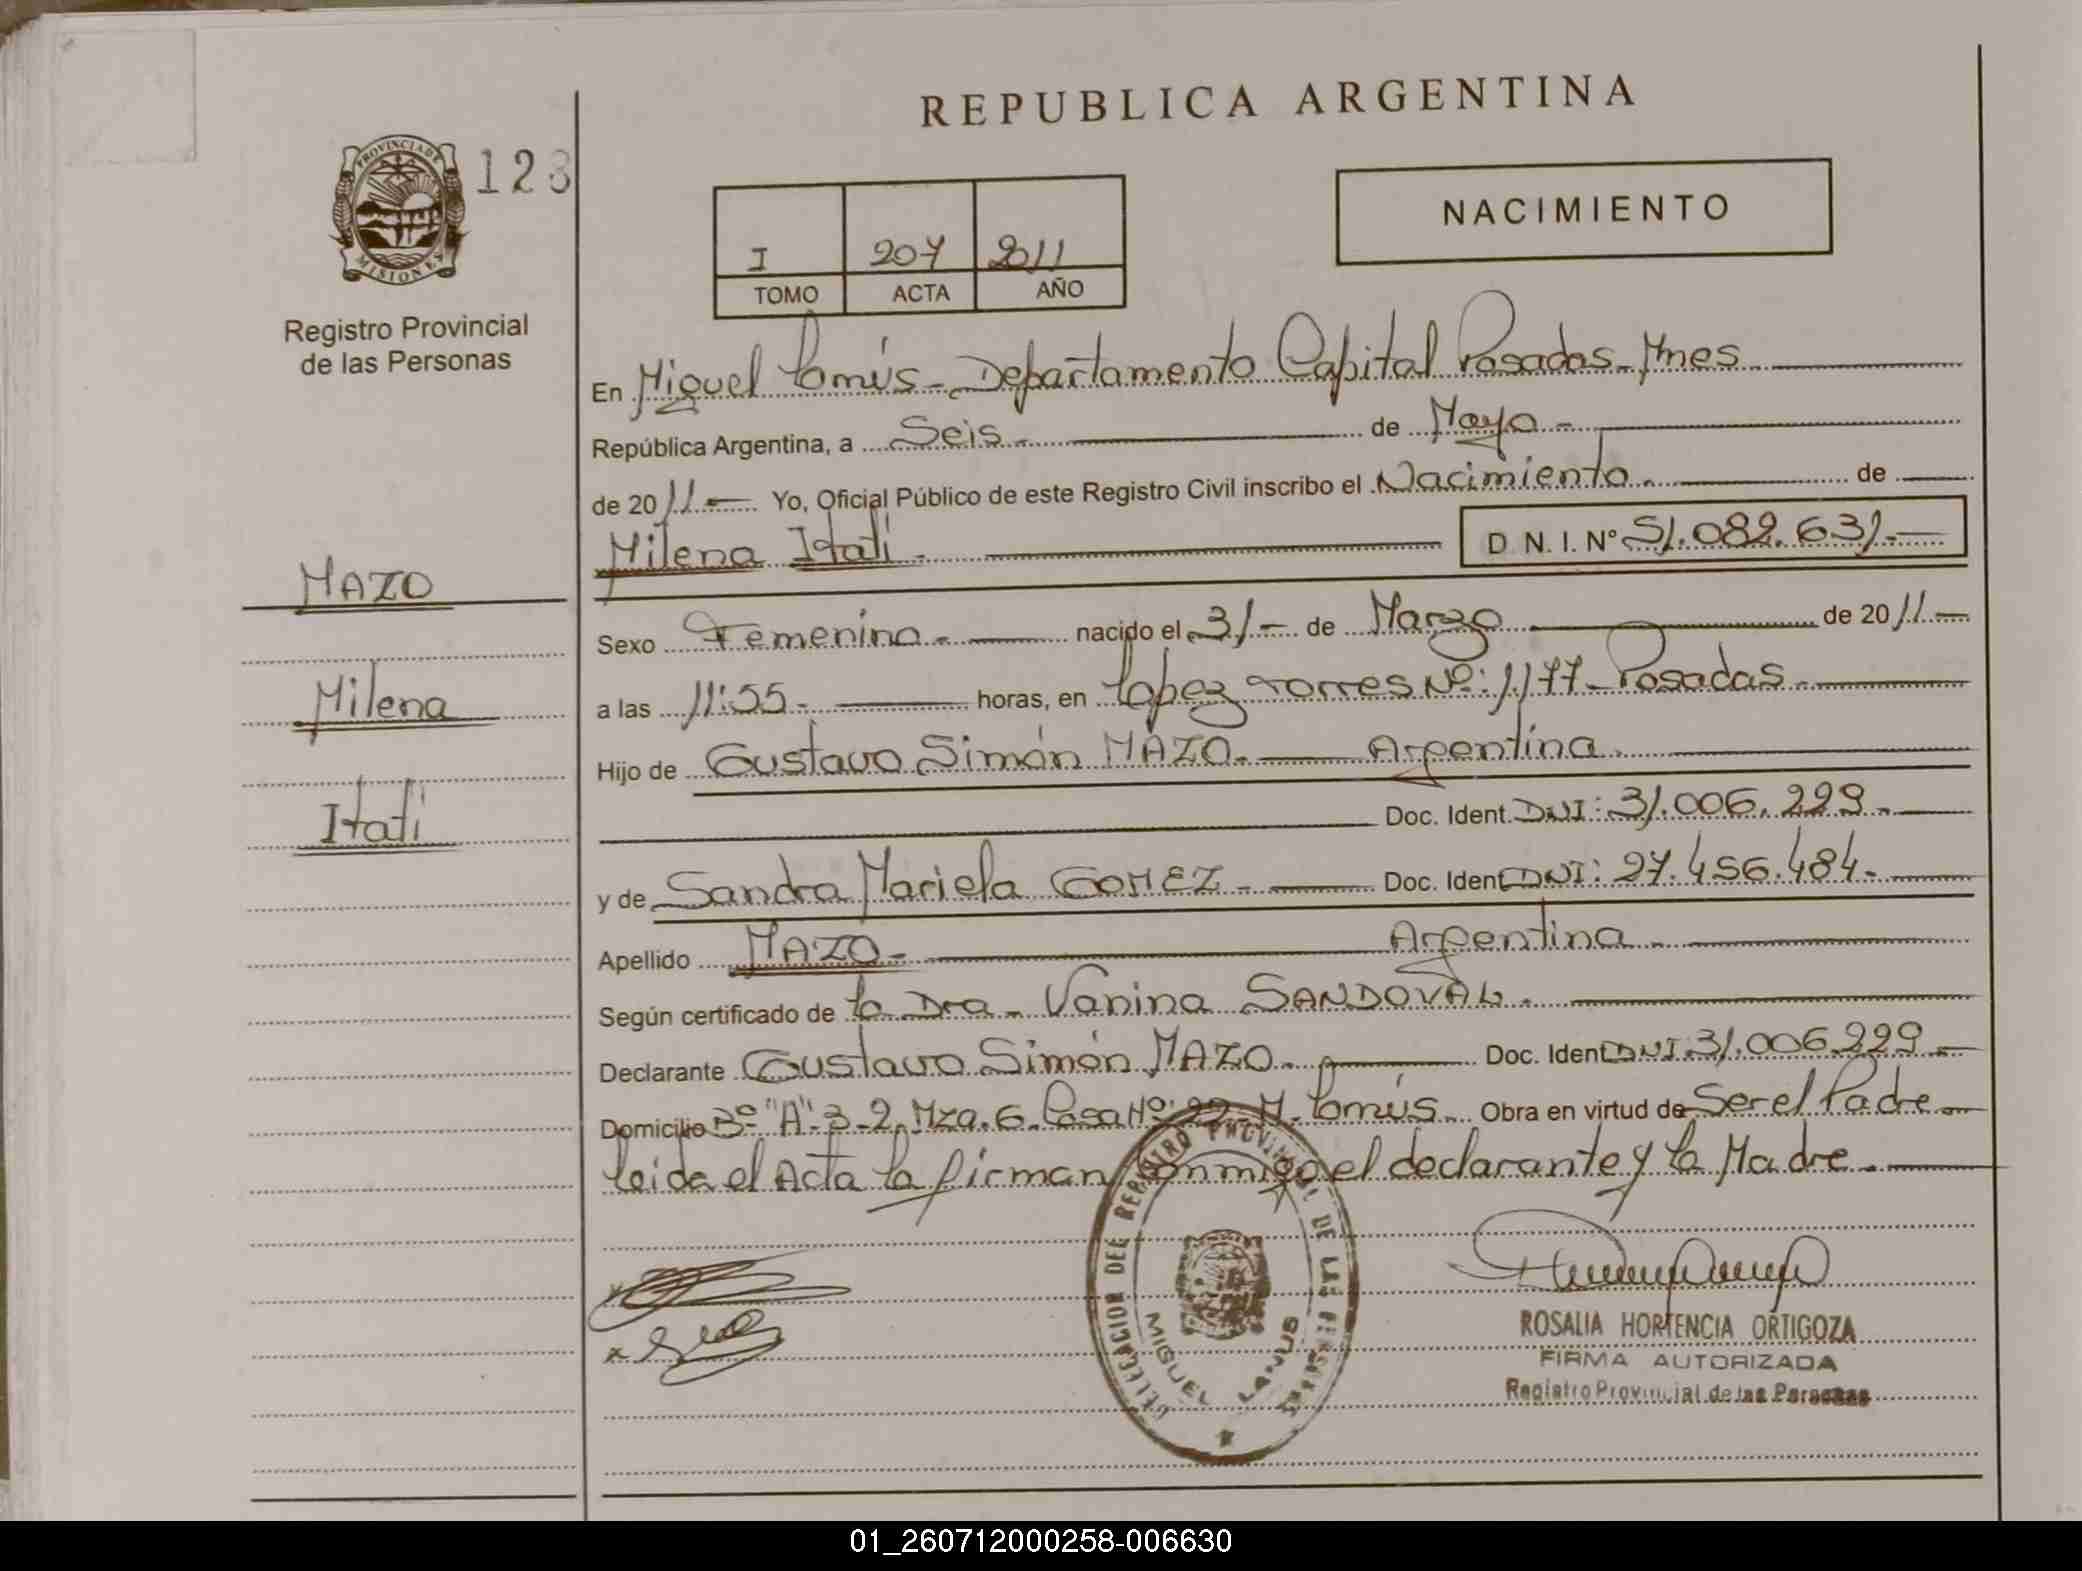 REPUBLICA ARGENTINA
PROVINCIA DE MISIONES
123
NACIMIENTO
I 207 2011
TOMO ACTA AÑO
Registro Provincial
de las Personas
En Miguel Lanús - Departamento Capital Posadas - Mnes
República Argentina, a Seis - de Mayo -
de 2011 - Yo, Oficial Público de este Registro Civil inscribo el Nacimiento de
Milena Itatí - D N. I. N° 51.082.631. -
MAZO
Milena
Itatí
Sexo Femenino - nacido el 31 - de Marzo de 2011 -
a las 11:55 - horas, en Lopez Torres Nº: 1177 - Posadas -
Hijo de Gustavo Simón MAZO. - Argentina
Doc. Ident. DNI: 31.006.229 -
y de Sandra Mariela GOMEZ - Doc. Ident DNI: 27.456.484 -
Apellido MAZO - Argentina -
Según certificado de la Dra - Vanina SANDOVAL -
Declarante Gustavo Simón MAZO - Doc. Ident DNI 31.006.229 -
Domicilio Bº "A" 3-2, Mza. 6 Casa Nº: 22 - M. Lanús Obra en virtud de Ser el Padre -
Leida el Acta la firman conmigo el declarante y la Madre -
DELEGACION DEL REGISTRO PROVINCIAL DE LAS PERSONAS
MIGUEL LANUS
ROSALIA HORTENCIA ORTIGOZA
FIRMA AUTORIZADA
Registro Provincial de las Personas
01_260712000258-006630